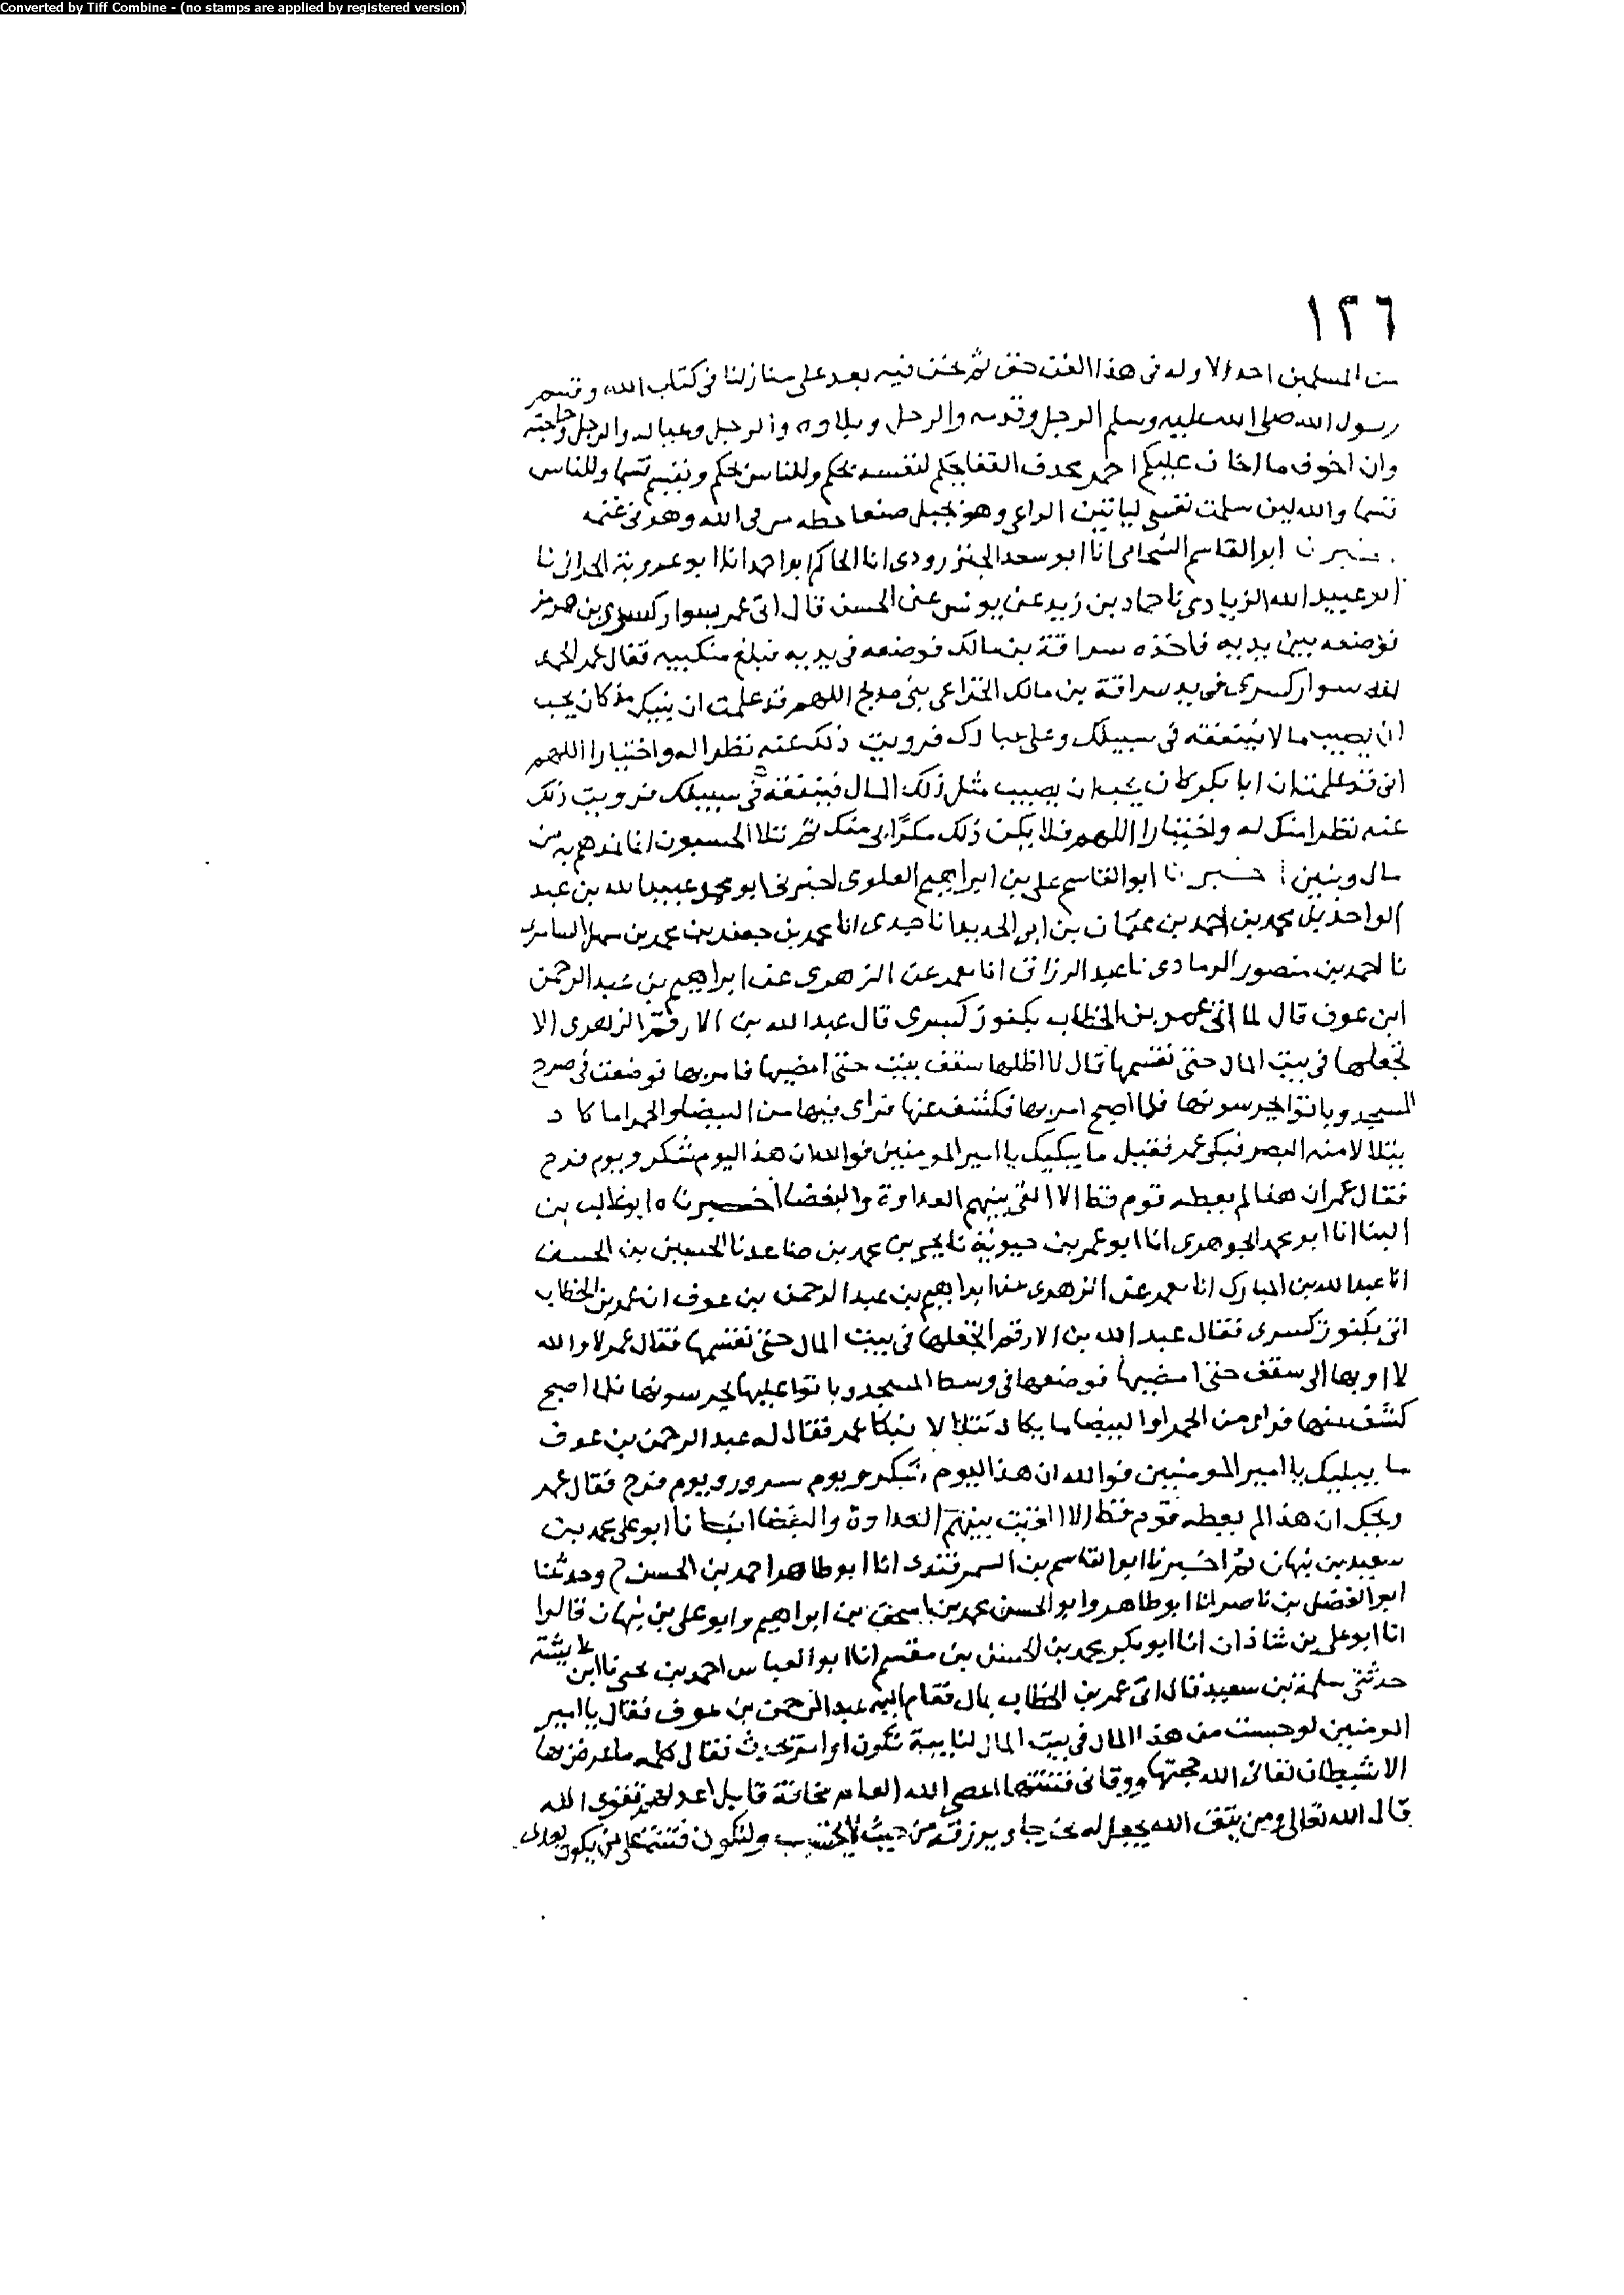 Converted by Tiff Combine - (no stamps are applied by registered version)
١٢٦
من المسلمين احد الا وله فى هذا الفى حق ثم نحن فيه بعد على منازلنا فى كتاب الله وقسم
رسول الله صلى الله عليه وسلم الرجل وقدمه والرجل وبلاوه والرجل وعياله والرجل وحاجته
وان اخوف ما اخاف عليكم احمر محذف القفا يحكم لنفسه بحكم وللناس بحكم ويقسم قسما وللناس
قسما والله لين سلمت نفسى لياتين الراعى وهو بجبل صنعا حظه من فى الله وهو فى غنمه
اخبرنا ابو القاسم الشحامى انا ابو سعد الجنزرودى انا الحاكم ابو احمد انا ابو عروبة الحرانى نا
ابو عبيد الله الزيادى نا حماد بن زيد عن يونس عن الحسن قال اتى عمر بسوار كسرى بن هرمز
فوضعه بين يديه فاخذه سراقة بن مالك فوضعه فى يديه فبلغ منكبيه فقال عمر الحمد
لله سوار كسرى فى يد سراقة بن مالك الخزاعى بنى مدلج اللهم قد علمت ان نبيك قد كان يحب
ان يصيب مالا ينفقه فى سبيلك وعلى عبادك فزويت ذلك عنه نظرا له واختيارا اللهم
انى قد علمت ان ابا بكر كان يحب ان يصيب مثل ذلك المال فينفقه فى سبيلك فزويت ذلك
عنه نظرا منك له واختيارا اللهم فلا يكن ذلك مكرا بى منك ثم تلا ايحسبون انما نمدهم به من
مال وبنين اخبرنا ابو القاسم على بن ابراهيم العلوى اخبرنى ابو محمد عبيد الله بن عبد
الواحد بن محمد بن احمد بن عثمان بن ابى الحديد انا جدى انا محمد بن جعفر بن محمد بن سهل السامرى
نا احمد بن منصور الرمادى نا عبد الرزاق انا معمر عن الزهرى عن ابراهيم بن عبد الرحمن
ابن عوف قال لما اتى عمر بن الخطاب بكنوز كسرى قال عبد الله بن الارقم الزهرى الا
تجعلها فى بيت المال حتى تقسمها قال لا اظلها سقف بيت حتى امضيها فامر بها فوضعت فى صرح
المسجد وباتوا يحرسونها فلما اصبح امر بها فكشف عنها فراى فيها من البيضا والحمرا ما كاد
يتلالا منه البصر فبكى عمر فقيل ما يبكيك يا امير المومنين فوالله ان هذا اليوم شكر ويوم فرح
فقال عمر ان هذا لم يعطه قوم قط الا القى بينهم العداوة والبغضا اخبرناه ابو غالب بن
البنا انا ابو محمد الجوهرى انا ابو عمر بن حيوية نا يحيى بن محمد بن صاعد نا الحسين بن الحسن
انا عبد الله بن المبارك انا معمر عن الزهرى عن ابراهيم بن عبد الرحمن بن عوف ان عمر بن الخطاب
اتى بكنوز كسرى فقال عبد الله بن الارقم اتجعلها فى بيت المال حتى تقسمها فقال عمر لا والله
لا اويها الى سقف حتى امضيها فوضعها فى وسط المسجد وباتوا عليها يحرسونها فلما اصبح
كشف عنها فراى من الحمرا والبيضا ما يكاد يتلالا فبكا عمر فقال له عبد الرحمن بن عوف
ما يبكيك يا امير المومنين فوالله ان هذا اليوم شكر ويوم سرور ويوم فرح فقال عمر
ويحك ان هذا لم يعطه قوم قط الا القيت بينهم العداوة والبغضا انبانا ابو على محمد بن
سعيد بن نبهان ثم اخبرنا ابو القاسم بن السمرقندى انا ابو طاهر احمد بن الحسن ح وحدثنا
ابو الفضل بن ناصر انا ابو طاهر وابو الحسن محمد بن اسحق بن ابراهيم وابو على بن نبهان قالوا
انا ابو على بن شاذان انا ابو بكر محمد بن الحسن بن مقسم انا ابو العباس احمد بن يحيى نا ابن عايشة
حدثنى سلمة بن سعيد قال اتى عمر بن الخطاب بمال فقام اليه عبد الرحمن بن عوف فقال يا امير
المومنين لو حبست من هذا المال فى بيت المال لنايبة تكون او امر يحدث فقال كلمة ما عرض بها
الا شيطان لقانى الله حجتها ووقانى فتنتها اعصى الله العام مخافة قابل اعد لهم تقوى الله
قال الله تعالى ومن يتق الله يجعل له مخرجا ويرزقه من حيث لا يحتسب ولتكون فتنة على من يكون بعدى